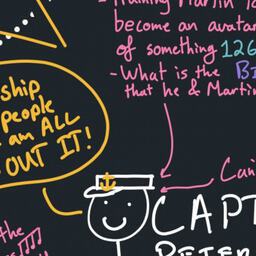 - Training Martin to
become an avatar
of something 126
- What is the BI
that he & Martin
ship
people
am ALL
OUT IT!
Cani
CAPT
PETER
the